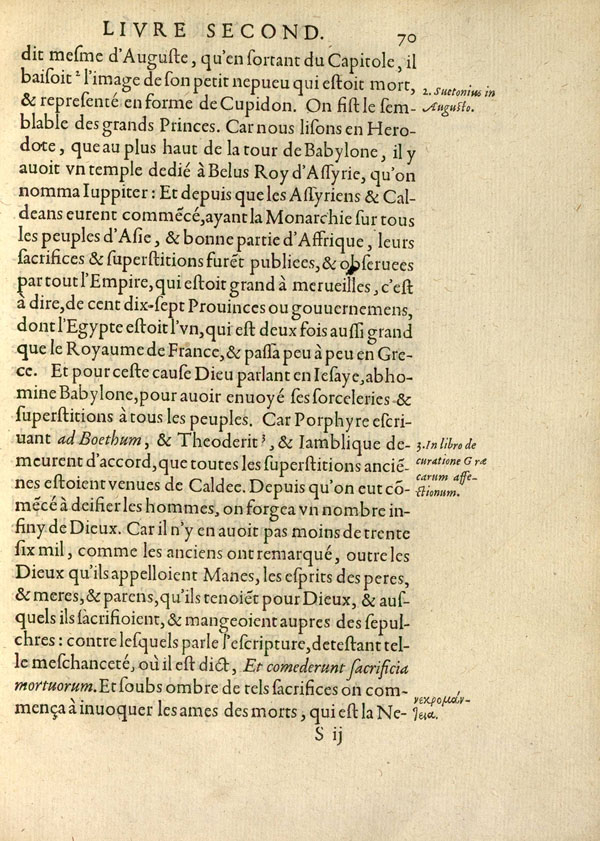 LIVRE SECOND. 70
dit mesme d'Auguste, qu'en sortant du Capitole, il
baisoit ² l'image de son petit nepueu qui estoit mort,
& representé en forme de Cupidon. On fist le sem-
blable des grands Princes. Car nous lisons en Hero-
dote, que au plus haut de la tour de Babylone, il y
auoit vn temple dedié à Belus Roy d'Assyrie, qu'on
nomma Iuppiter: Et depuis que les Assyriens & Cal-
deans eurent commẽcé, ayant la Monarchie sur tous
les peuples d'Asie, & bonne partie d'Affrique, leurs
sacrifices & superstitions furẽt publiees, & obseruees
par tout l'Empire, qui estoit grand à merueilles, c'est
à dire, de cent dix-sept Prouinces ou gouuernemens,
dont l'Egypte estoit l'vn, qui est deux fois aussi grand
que le Royaume de France, & passa peu à peu en Gre-
ce. Et pour ceste cause Dieu parlant en Iesaye, abho-
mine Babylone, pour auoir enuoyé ses sorceleries &
superstitions à tous les peuples. Car Porphyre escri-
uant ad Boethum, & Theoderit ³, & Iamblique de-
meurent d'accord, que toutes les superstitions anciẽ-
nes estoient venues de Caldee. Depuis qu'on eut cõ-
mẽcé à deifier les hommes, on forgea vn nombre in-
finy de Dieux. Car il n'y en auoit pas moins de trente
six mil, comme les anciens ont remarqué, outre les
Dieux qu'ils appelloient Manes, les esprits des peres,
& meres, & parens, qu'ils tenoiẽt pour Dieux, & aus-
quels ils sacrifioient, & mangeoient aupres des sepul-
chres: contre lesquels parle l'escripture, detestant tel-
le meschanceté, où il est dict, Et comederunt sacrificia
mortuorum. Et soubs ombre de tels sacrifices on com-
mença à inuoquer les ames des morts, qui est la Ne-
S ij
2. Suetonius in
Augusto.
3. In libro de
curatione Græ
carum affe-
ctionum.
νεκρομάν-
τεια.